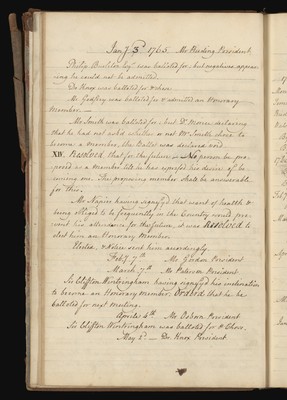 Jany 3d 1765 Mr Harding President.
Philip                was ballotted for; but negatives appear-
ing he could not be admitted.
Dr Knox was ballotted for & chose.
Mr Godfrey was ballotted for & admitted an Honorary
Member.—
Mr Smith was ballotted for; but Dr Munro declaring
that he had not ask'd whether or not Mr Smith chose to
become a Member, the Ballot was declared void.
XIV. Resolved, that for the future — No person be pro-
posed as a Member till he has express'd his desire of be-
coming one. The proposing member shall be answerable
for this.
Mr Napier having signifyed that want of health &
being obliged to be frequently in the Country would pre-
vent his attendance for the future, it was Resolved to
elect him an Honorary Member.
Elected, & Notice sent him accordingly.
Feby 7th Mr            President
March 7th Mr Paterson President.
Sir Clifton Wintringham having signifyed his inclination
to become an Honorary Member; Ordered that he be
ballotted for next meeting.
Aprile 4th. Mr Osborn President
Sir Clifton Wintringham was ballotted for & Chose.
May 2d — Dr. Knox President.